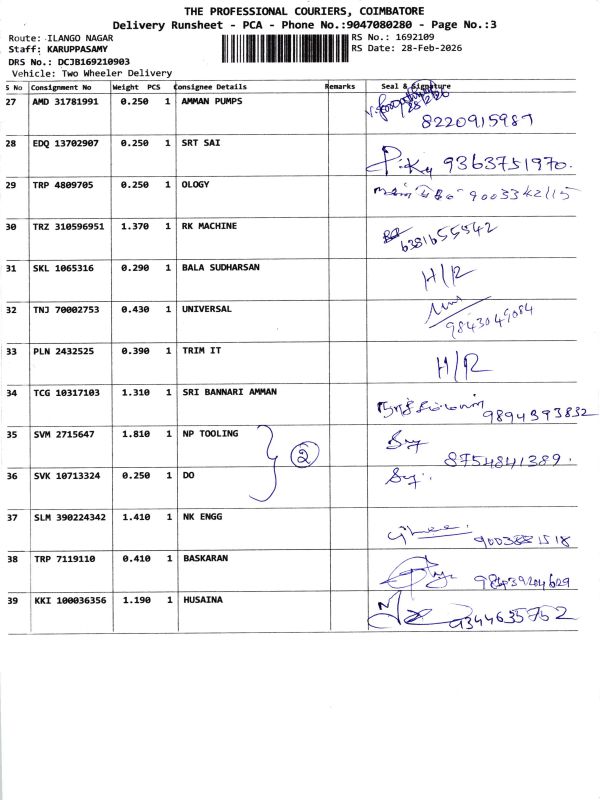 THE PROFESSIONAL COURIERS, COIMBATORE
Delivery Runsheet - PCA - Phone No.:9047080280 - Page No.:3
Route: ILANGO NAGAR RS No.: 1692109
Staff: KARUPPASAMY RS Date: 28-Feb-2026
DRS No.: DCJB169210903
Vehicle: Two Wheeler Delivery
S No Consignment No Weight PCS Consignee Details Remarks Seal & Signature
27 AMD 31781991 0.250 1 AMMAN PUMPS 28/2/26
8220915987
28 EDQ 13702907 0.250 1 SRT SAI
9363751970.
29 TRP 4809705 0.250 1 OLOGY
30 TRZ 310596951 1.370 1 RK MACHINE
6381655942
31 SKL 1065316 0.290 1 BALA SUDHARSAN H/R
32 TNJ 70002753 0.430 1 UNIVERSAL
9843049084
33 PLN 2432525 0.390 1 TRIM IT H/R
34 TCG 10317103 1.310 1 SRI BANNARI AMMAN
9894393832
35 SVM 2715647 1.810 1 NP TOOLING
2 8754841389.
36 SVK 10713324 0.250 1 DO
37 SLM 390224342 1.410 1 NK ENGG
9003881518
38 TRP 7119110 0.410 1 BASKARAN
39 KKI 100036356 1.190 1 HUSAINA
9344635752